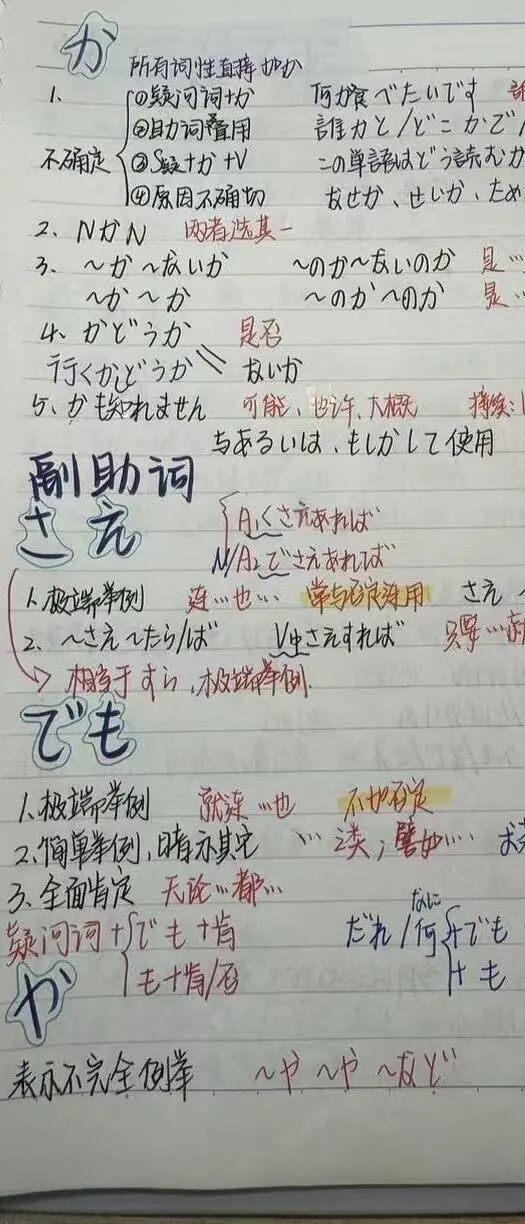 か 所有词性直接加か
1.
不确定
①疑问词+か 何か食べたいです
②助词叠用 誰かと/どこかで/
③S疑+か+V この単語はどう読むか
④原因不确切 なぜか、せいか、ため
2、NかN 两者选其一
3、〜か〜ないか 〜のか〜ないのか 是…
〜か〜か 〜のか〜のか 是…
4、かどうか 是否
行くかどうか ないか
5、かも知れません 可能、也许、大概 持续:
与あるいは、もしかして使用
副助词
さえ
A₁くさえあれば
N/A₂でさえあれば
1、极端举例 连…也… 常与否定连用 さえ〜
2、〜さえ〜たら/ば V中さえすれば 只要…
相当于すら,极端举例.
でも
1、极端举例 就连…也 不加否定
2、简单举例,暗示其它 …之类;譬如…
3、全面肯定 无论…都…
疑问词+ でも+肯
も+肯/否
だれ/何 +でも
なに
+も
か
表示不完全例举 〜や〜や〜など